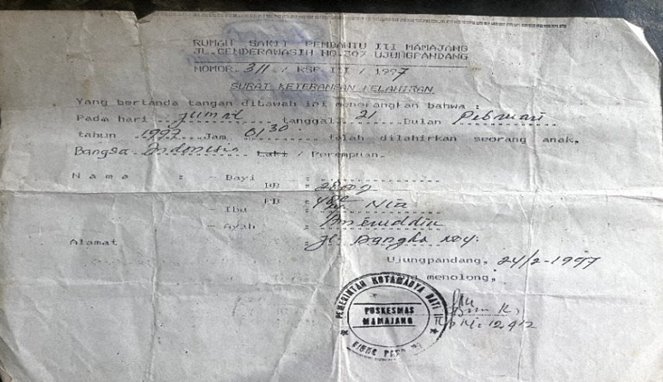 RUMAH SAKIT PEMBANTU III MAMAJANG
JL.CENDERAWASIH NO.307 UJUNGPANDANG
NOMOR. 311 / RSP III / 1997
SURAT KETERANGAN KELAHIRAN
Yang bertanda tangan dibawah ini menerangkan bahwa :
Pada hari Jumat tanggal 21 Bulan Pebruari
tahun 1997 Jam 01.30 telah dilahirkan seorang anak,
Bangsa Indonesia Laki / Perempuan.
Nama : - Bayi :
BB : 2800 g
PB :
- Ibu : Nia
- Ayah :
Alamat : Jl. Bangka
Ujungpandang, 24/2-1997
menolong,
PEMERINTAH KOTAMADYA DATI II
PUSKESMAS
MAMAJANG